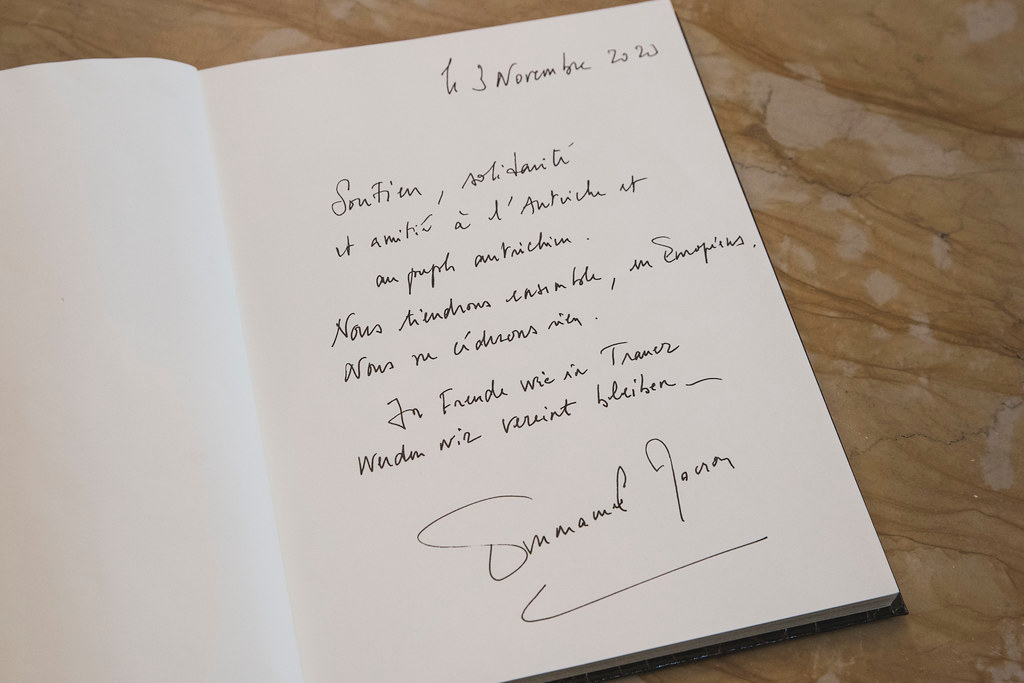 le 3 Novembre 2020
Soutien, solidarité
et amitié à l'Autriche et
au peuple autrichien.
Nous tiendrons ensemble, en Européens.
Nous ne céderons rien.
In Freude wie in Trauer
werden wir vereint bleiben —
Emmanuel Macron